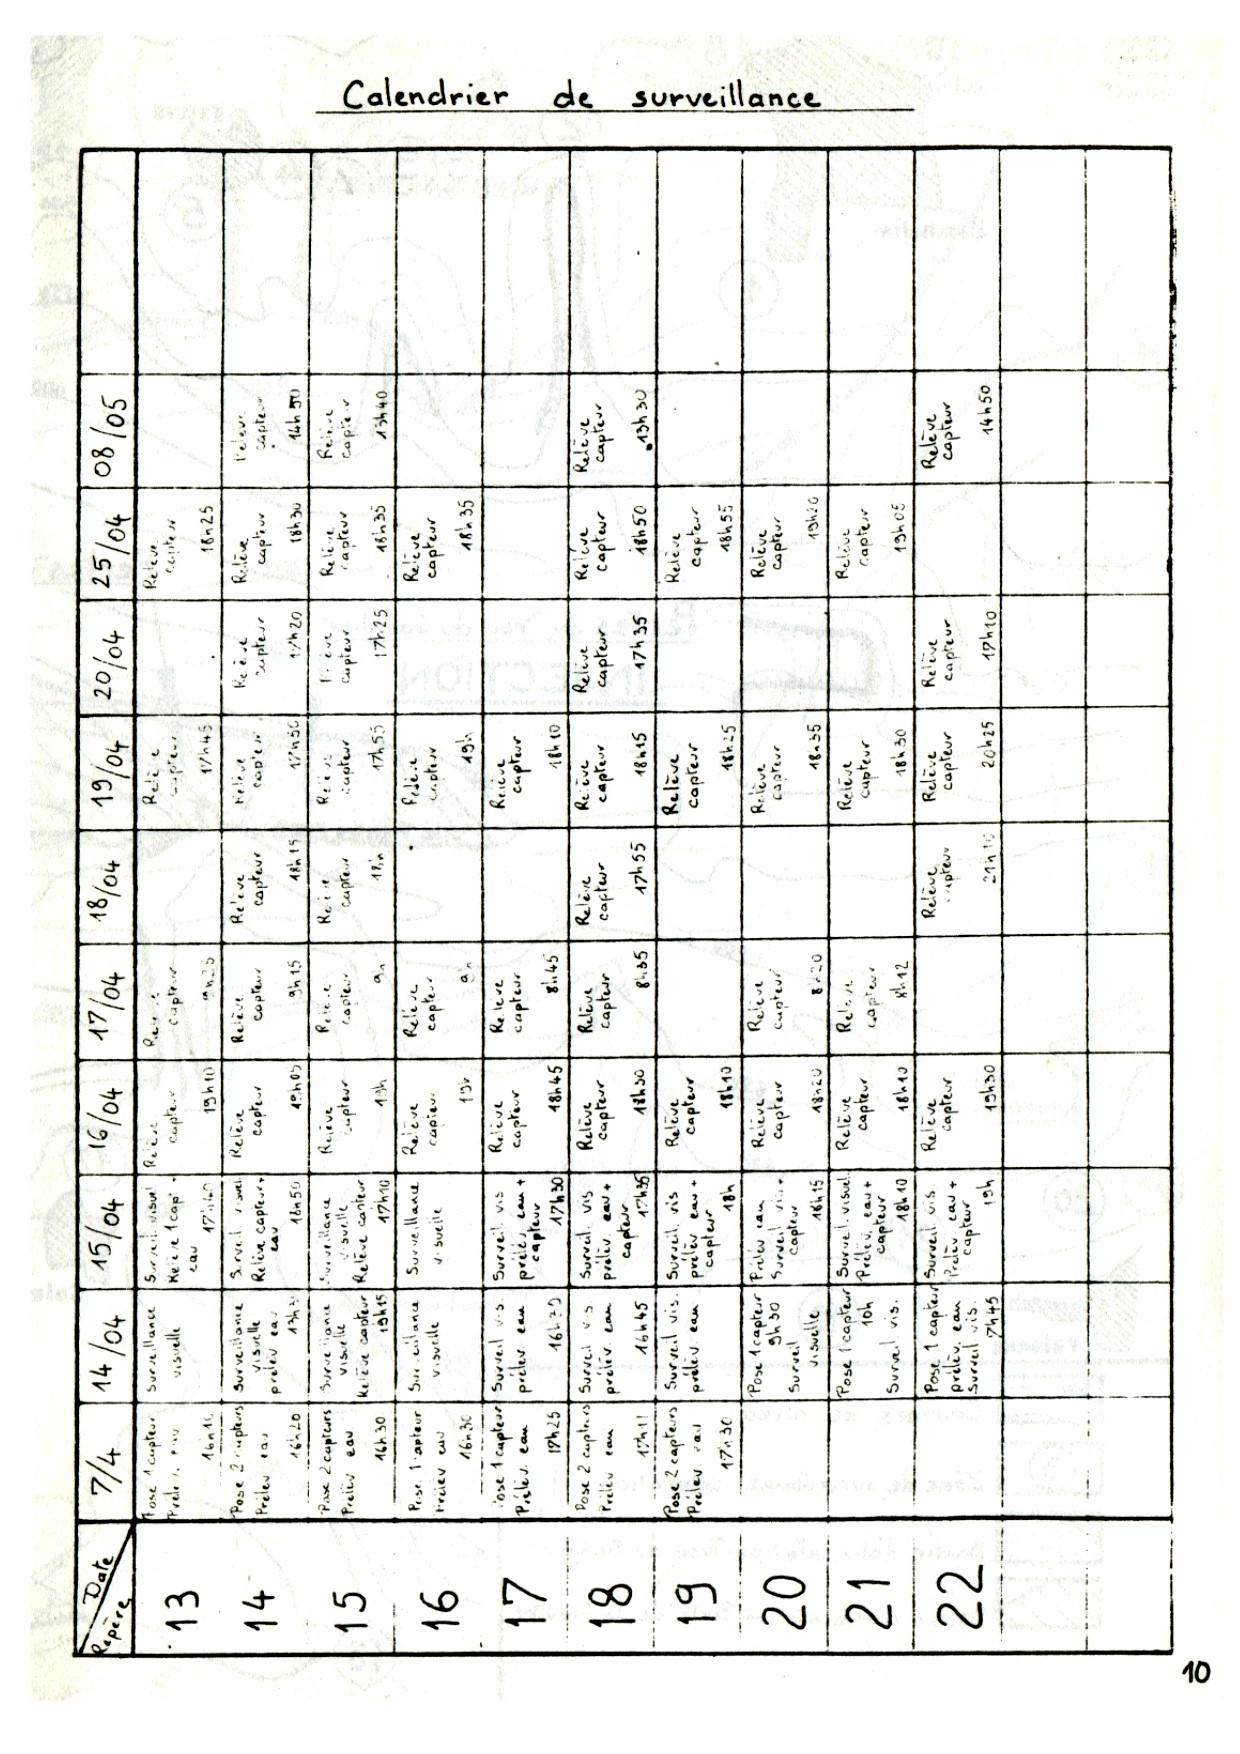 Calendrier de surveillance
Date
Repère
7/4
14/04
15/04
16/04
17/04
18/04
19/04
20/04
25/04
08/05
13
Pose 1 capteur
16h
Surveillance
visuelle
Surveil. visuel
eau
17h40
Relève
capteur
19h10
capteur
Relève
capteur
17h45
Relève
capteur
18h25
14
Pose 2 capteurs
Prélev eau
16h20
Surveillance
visuelle
prélev eau
Surveil. visuel
Relève capteur+
eau
16h50
Relève
capteur
19h05
Relève
capteur
9h15
Relève
capteur
18h15
Relève
capteur
17h50
Relève
capteur
17h20
Relève
capteur
18h30
Relève
capteur
14h50
15
Pose 2 capteurs
Prélev eau
16h30
Surveillance
visuelle
Relève capteur
19h15
Surveillance
visuelle
Relève capteur
17h10
Relève
capteur
19h
Relève
capteur
9h
Relève
capteur
Relève
capteur
17h55
Relève
capteur
17h25
Relève
capteur
18h35
Relève
capteur
13h40
16
Pose 1 capteur
Prélev eau
16h30
Surveillance
visuelle
Surveillance
visuelle
Relève
capteur
19h
Relève
capteur
9h
Relève
capteur
19h
Relève
capteur
18h35
17
Pose 1 capteur
Prélev. eau
17h25
Surveil vis.
prélev. eau
Surveil vis
prélev. eau +
capteur
17h30
Relève
capteur
18h45
Relève
capteur
8h45
Relève
capteur
18h10
18
Pose 2 capteurs
Prélev eau
Surveil vis.
prélev. eau
16h45
Surveil. vis
prélev. eau +
capteur
17h35
Relève
capteur
18h30
Relève
capteur
8h35
Relève
capteur
17h55
Relève
capteur
18h15
Relève
capteur
17h35
Relève
capteur
18h50
Relève
capteur
13h30
19
Pose 2 capteurs
Prélev. eau
17h30
Surveil vis.
prélev. eau
Surveil vis
prélev eau +
capteur
18h
Relève
capteur
18h10
Relève
capteur
18h25
Relève
capteur
18h55
20
Pose 1 capteur
9h30
Surveil
visuelle
Prélev eau
Surveil vis +
capteur
18h15
Relève
capteur
18h20
Relève
capteur
8h20
Relève
capteur
18h35
Relève
capteur
19h20
21
Pose 1 capteur
10h
Surveil vis.
Surveil. visuel
Prélev. eau +
capteur
18h10
Relève
capteur
18h10
Relève
capteur
8h12
Relève
capteur
18h30
Relève
capteur
19h05
22
Pose 1 capteur
prélev. eau
Surveil vis.
7h45
Surveil vis.
Prélev eau +
capteur
19h
Relève
capteur
19h30
Relève
capteur
21h10
Relève
capteur
20h25
Relève
capteur
17h10
Relève
capteur
14h50
10